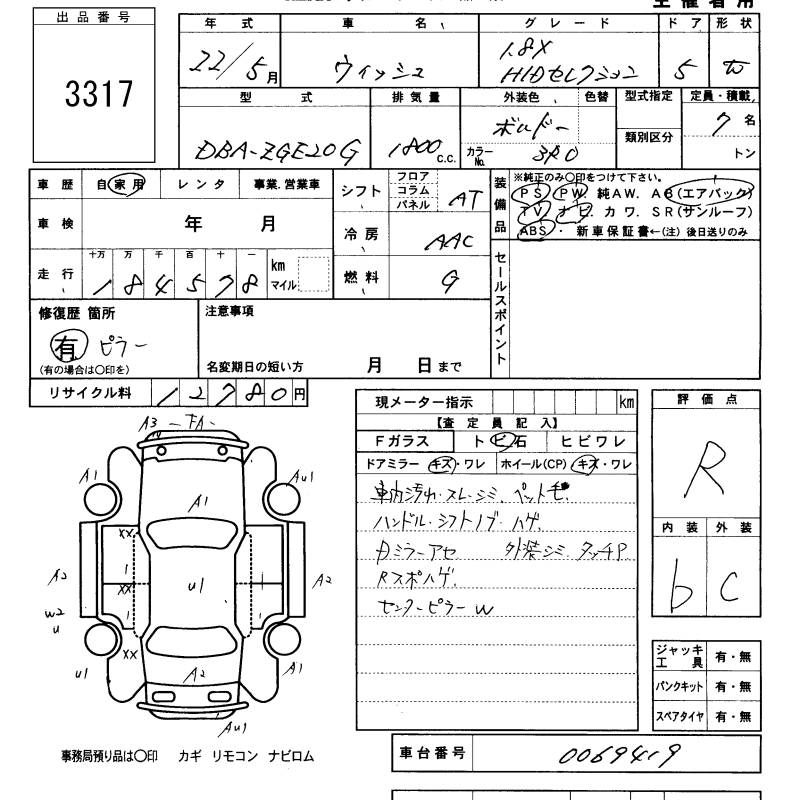 出品番号
3317
年式 車名 グレード ドア 形状
22/5月 ウィッシュ 1.8X HIDセレクション 5 W
型式 排気量 外装色 色替 型式指定 定員・積載
DBA-ZGE20G 1800 c.c. ボルドー 7名
カラーNo. 3R0 類別区分 トン
車歴 自家用 レンタ 事業.営業車
車検 年 月
走行 十万 万 千 百 十 一 km マイル
184578
シフト フロア コラム パネル AT
冷房 AAC
燃料 G
装備品
※純正のみ○印をつけて下さい。
PS PW 純AW. AB(エアバック)
TV ナビ. カワ. SR(サンルーフ)
ABS ・ 新車保証書←(注) 後日送りのみ
セールスポイント
修復歴 箇所
有 ピラー
(有の場合は○印を)
注意事項
名変期日の短い方 月 日まで
リサイクル料 12780円
現メーター指示 km
【査定員記入】
Fガラス トビ石 ヒビワレ
ドアミラー キズ・ワレ ホイール(CP) キズ・ワレ
車内汚れ・スレ・シミ. ペット毛.
ハンドル・シフトノブ・ハゲ
Dミラーアセ 外装シミ タッチP
Rスポハゲ.
センターピラーW
評価点
R
内装 外装
b C
ジャッキ工具 有・無
パンクキット 有・無
スペアタイヤ 有・無
A3
A1
AU1
A1
XX
A2
U1
A2
W2
U
XX
U1
A2
A1
AU1
事務局預り品は○印 カギ リモコン ナビロム
車台番号 0069419